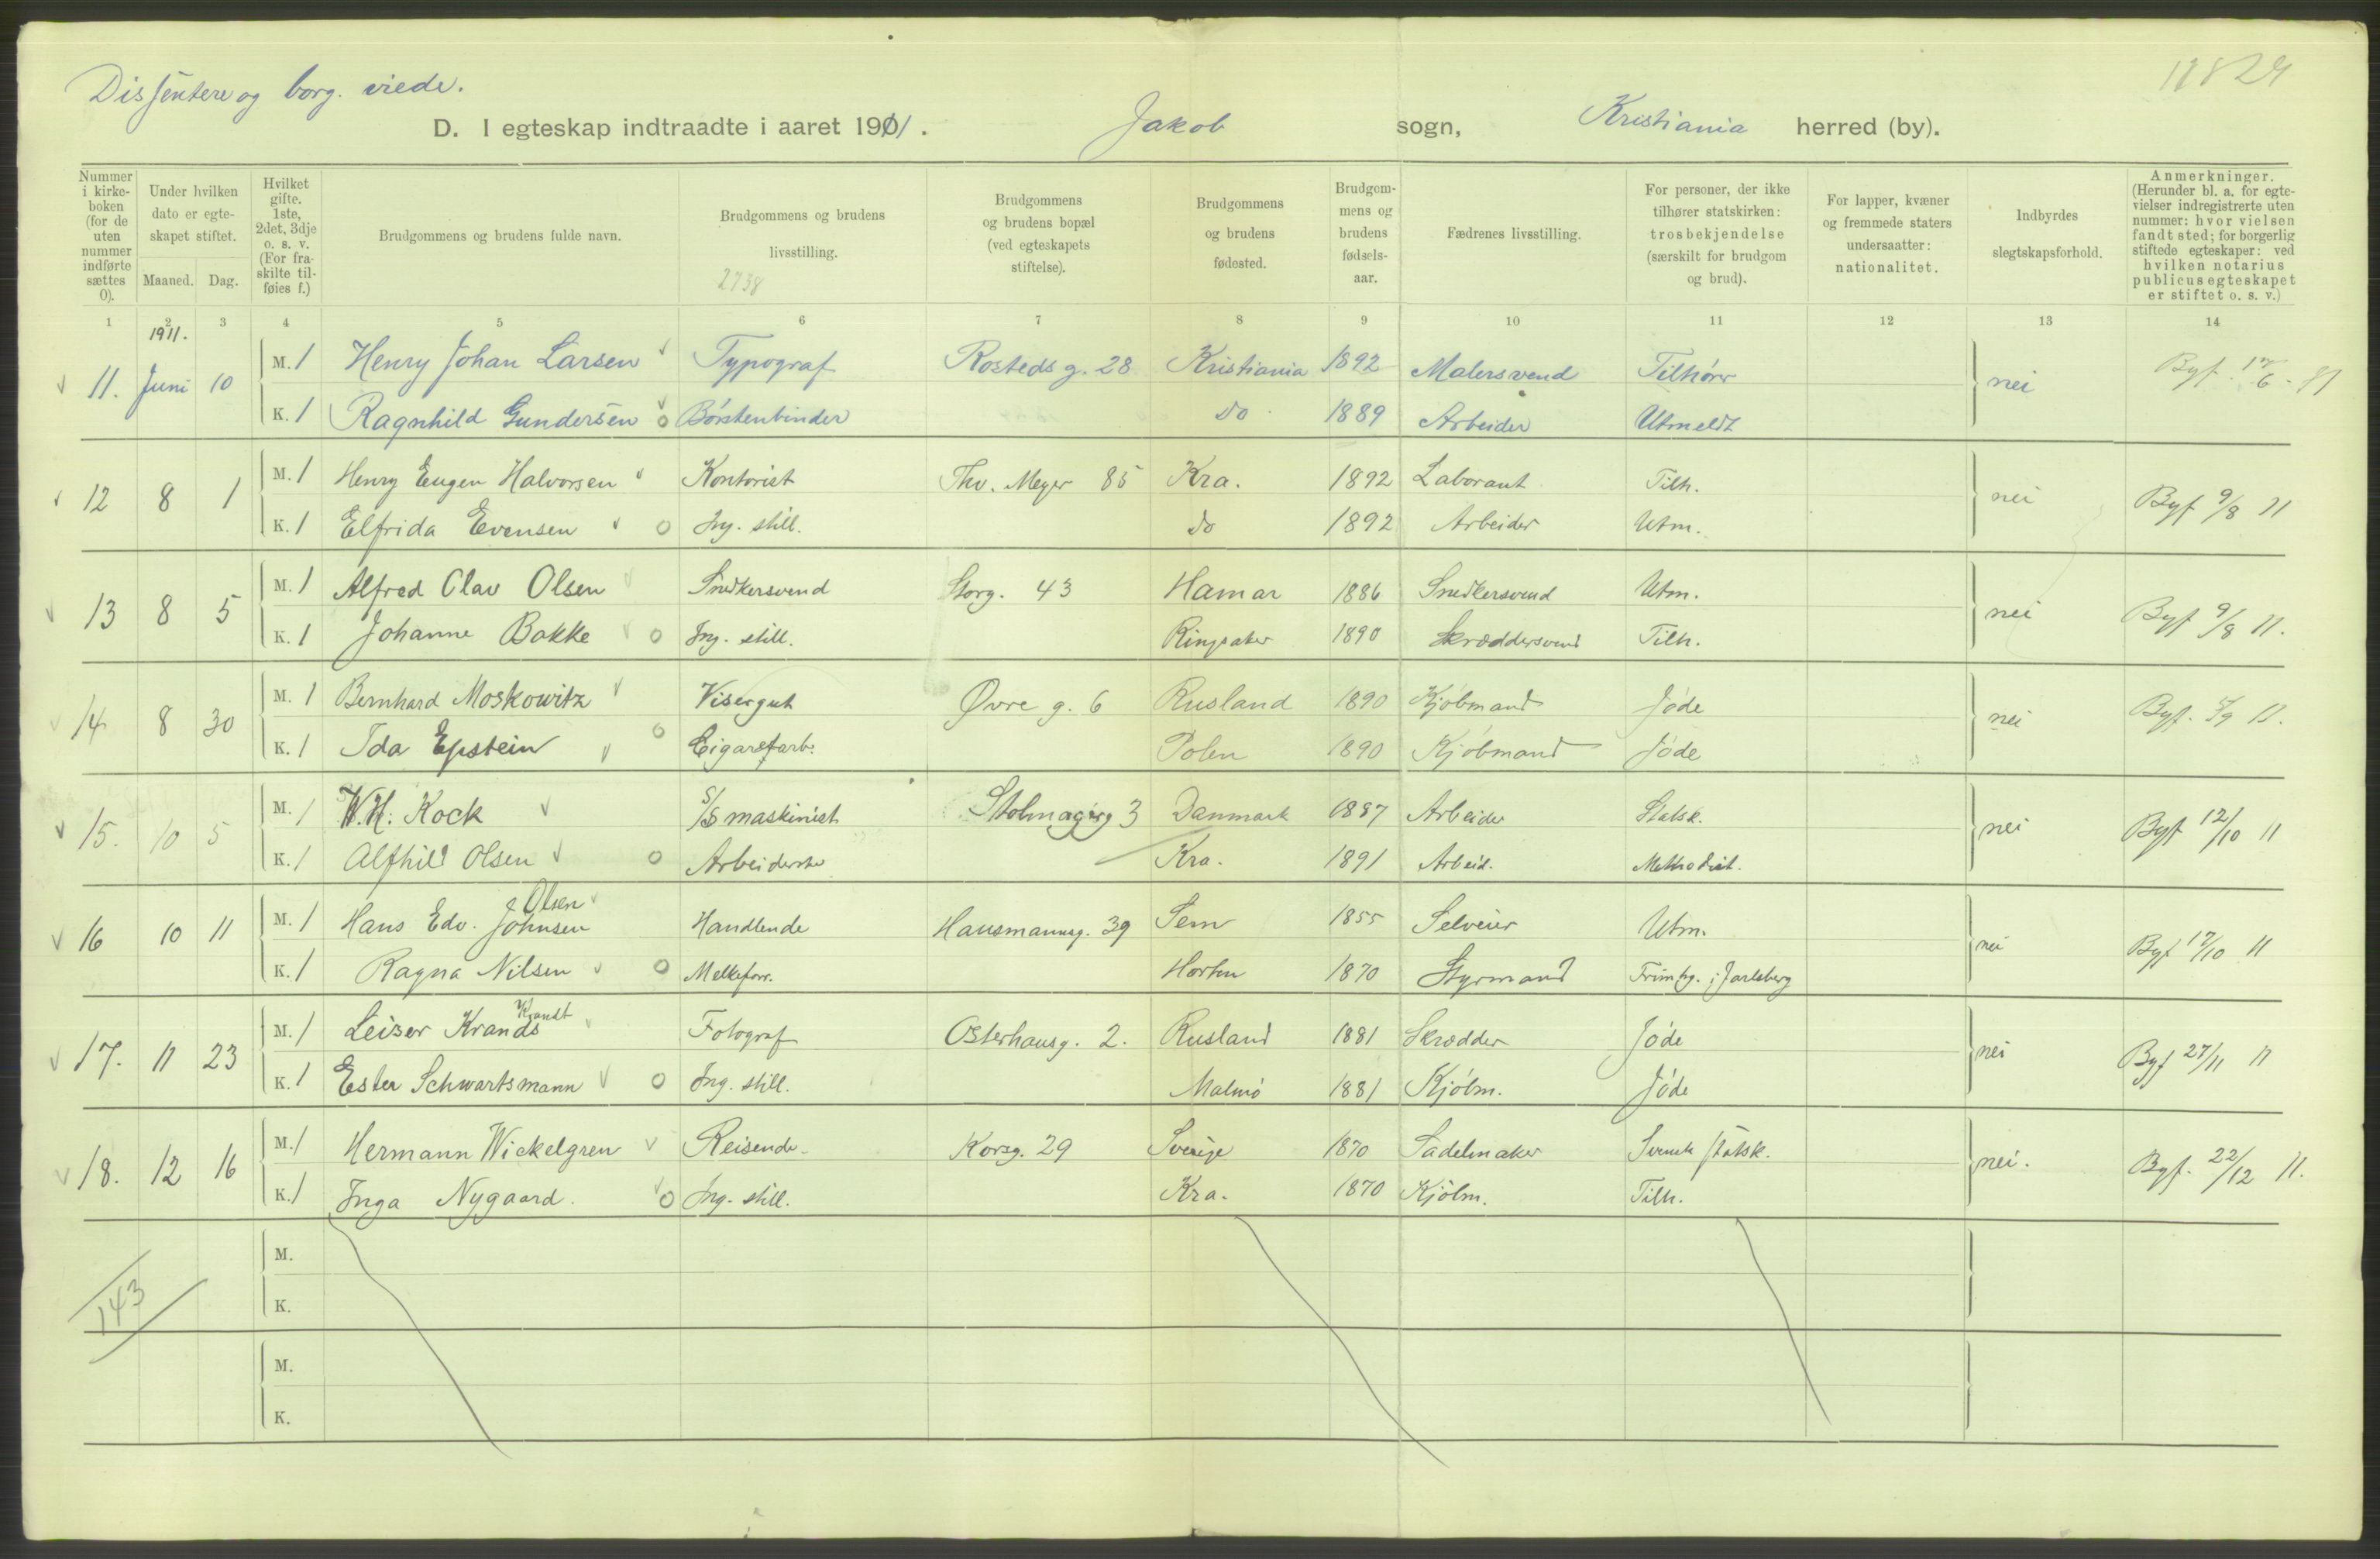 Dissentere og borg. viede.
D. I egteskap indtraadte i aaret 1911. Jakob sogn, Kristiania herred (by).
Nummer i kirkeboken (for de uten nummer indførte sættes 0).
Under hvilken dato er egteskapet stiftet.
Maaned. Dag.
Hvilket gifte. 1ste, 2det, 3dje o. s. v. (For fraskilte tilføies f.)
Brudgommens og brudens fulde navn.
Brudgommens og brudens livsstilling.
2738
Brudgommens og brudens bopæl (ved egteskapets stiftelse).
Brudgommens og brudens fødested.
Brudgommens og brudens fødselsaar.
Fædrenes livsstilling.
For personer, der ikke tilhører statskirken: trosbekjendelse (særskilt for brudgom og brud).
For lapper, kvæner og fremmede staters undersaatter: nationalitet.
Indbyrdes slegtskapsforhold.
Anmerkninger. (Herunder bl. a. for egtevielser indregistrerte uten nummer: hvor vielsen fandt sted; for borgerlig stiftede egteskaper: ved hvilken notarius publicus egteskapet er stiftet o. s. v.)
1 2 3 4 5 6 7 8 9 10 11 12 13 14
1911.
11. Juni 10 M. 1 Henry Johan Larsen Typograf Rosteds g. 28 Kristiania 1892 Malersvend Tilhører nei Byf 12/6 - 11
K. 1 Ragnhild Gundersen o Børstenbinder do 1889 Arbeider Utmeldt
12 8 1 M. 1 Henry Eugen Halvorsen Kontorist Thv. Meyer 85 Kra. 1892 Laborant Tilh. nei Byf 9/8 11
K. 1 Elfrida Evensen o Ing. still. do 1892 Arbeider Utm.
13 8 5 M. 1 Alfred Olav Olsen Snedkersvend Storg. 43 Hamar 1886 Snedkersvend Utm. nei Byf 9/8 11.
K. 1 Johanne Bakke o Ing. still. Ringsaker 1890 Skræddersvend Tilh.
14 8 30 M. 1 Bernhard Moskowitz Visergut Øvre g. 6 Rusland 1890 Kjøbmand Jøde nei Byf. 5/9 11.
K. 1 Ida Epstein o Cigaretarb. Polen 1890 Kjøbmand Jøde
15. 10 5 M. 1 W.H. Kock S/S maskinist Stolmagerg 3 Danmark 1887 Arbeider Statsk. nei Byf 12/10 11
K. 1 Alfhild Olsen o Arbeiderske Kra. 1891 Arbeid. Methodist.
Olsen
16 10 11 M. 1 Hans Edv. Johnsen Handlende Hausmannsg. 39 Sem 1855 Selveier Utm. nei Byf 17/10 11
K. 1 Ragna Nilsen o Melkeforr. Horten 1870 Styrmand Frimhg. i Jarlsberg
Krandt
17. 11 23 M. 1 Leiser Krands Fotograf Osterhausg. 2. Rusland 1881 Skrædder Jøde nei Byf 27/11 11
K. 1 Ester Schwartsmann o Ing. still. Malmø 1881 Kjøbm. Jøde
18. 12 16 M. 1 Hermann Wickelgren Reisende Korsg. 29 Sverige 1870 Sadelmaker Svensk statsk. nei. Byf. 22/12 11.
K. 1 Inga Nygaard. o Ing. still. Kra. 1870 Kjøbm. Tilh.
M.
143 K.
M.
K.